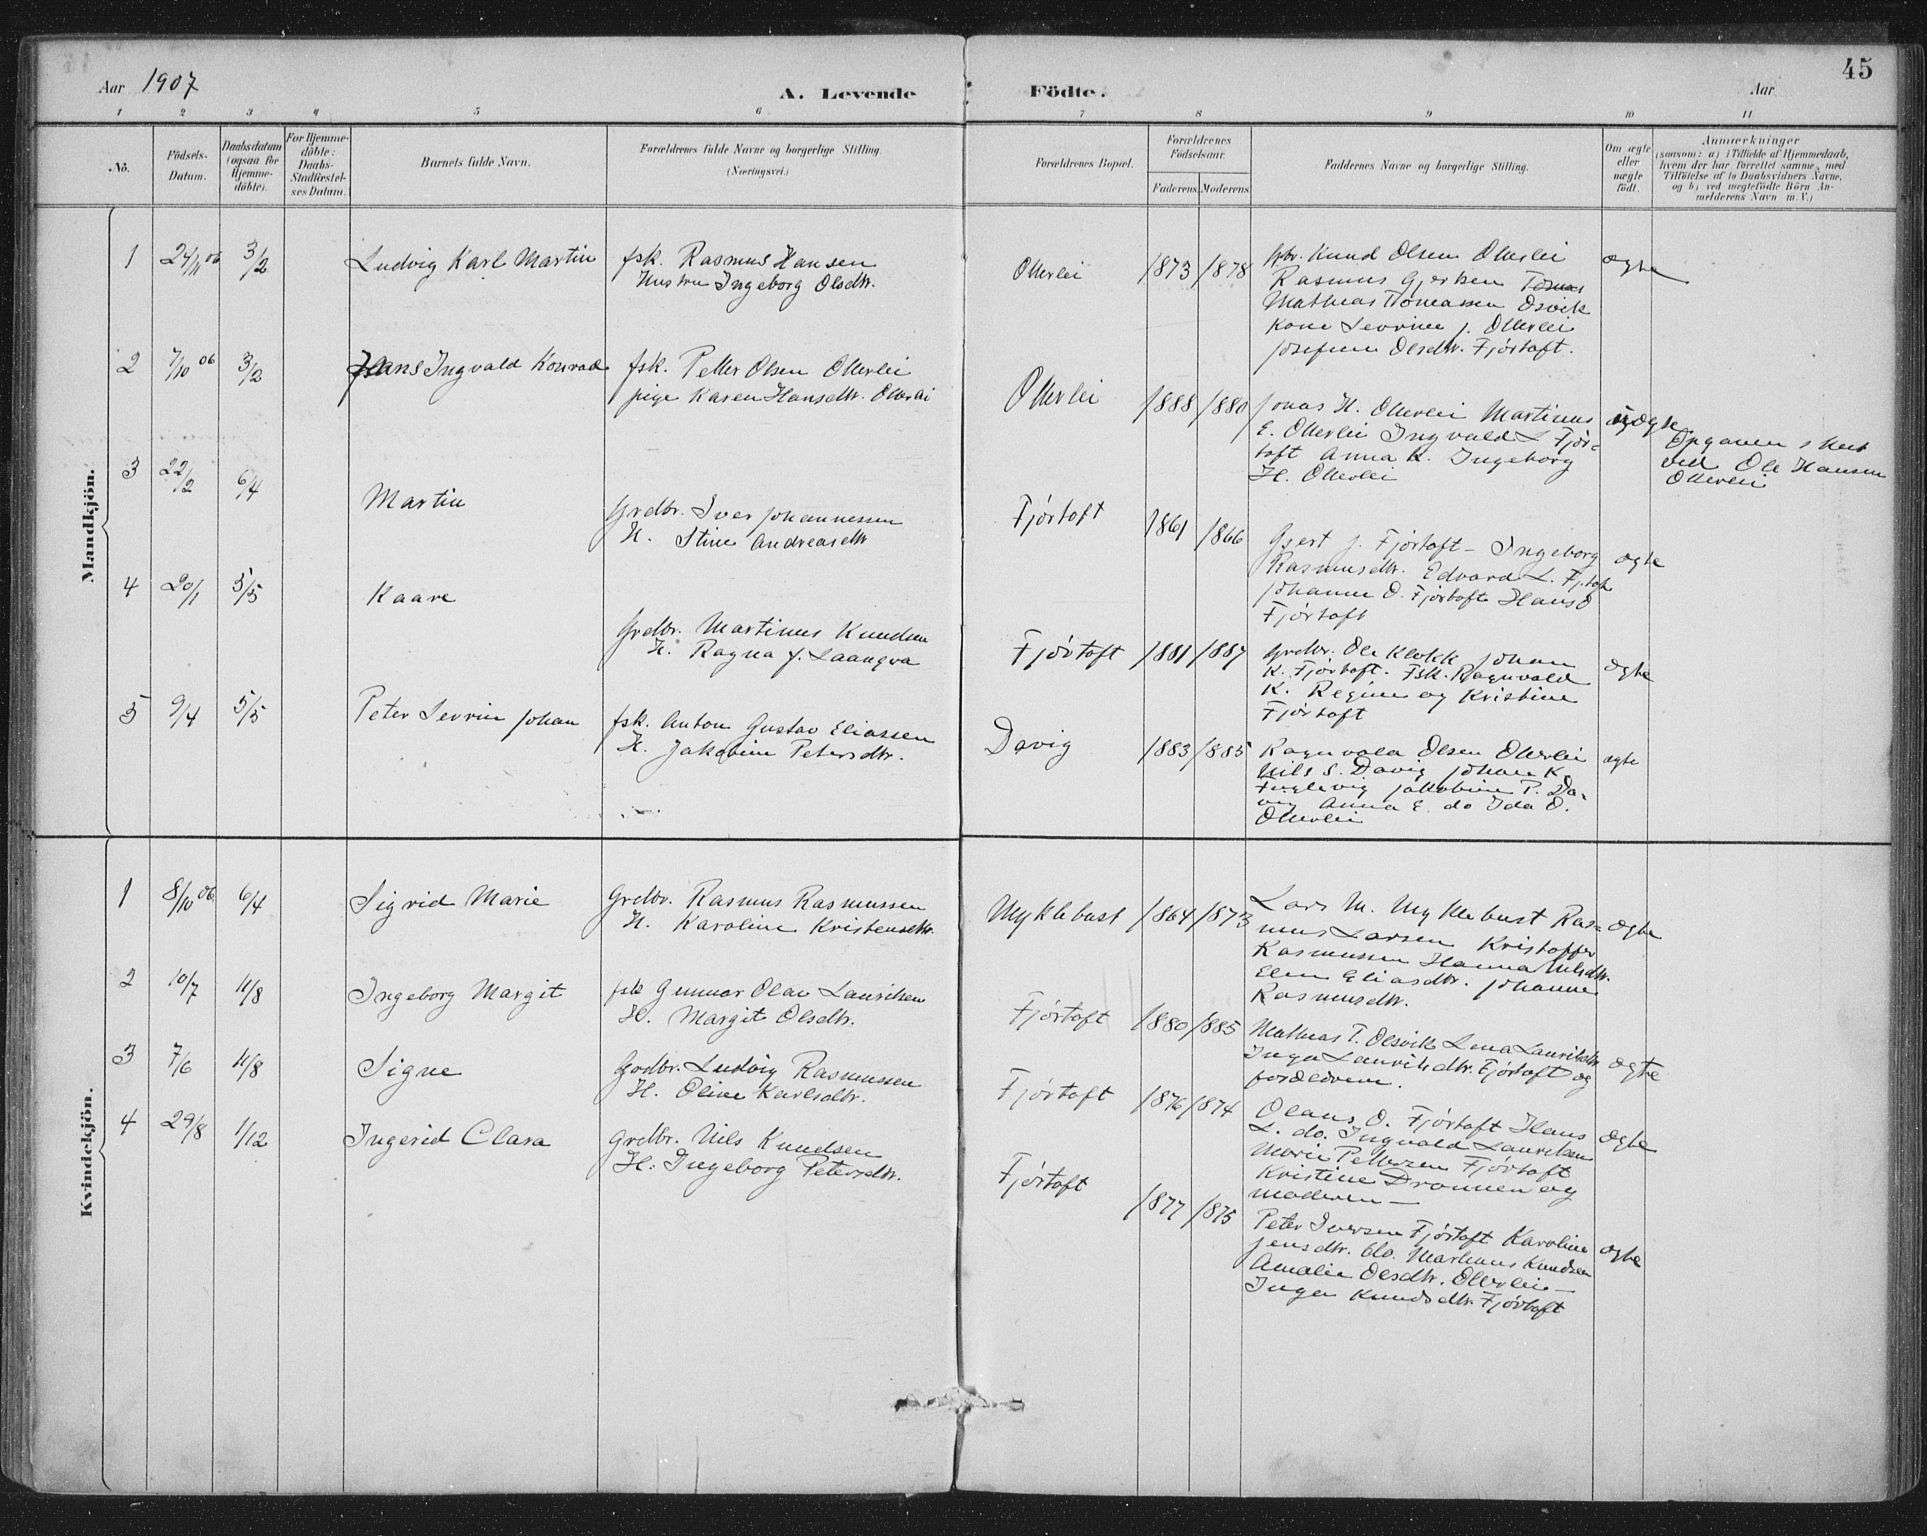 Aar 1907
A. Levende Födte.
Aar
45
1 2 3 4 5 6 7 8 9 10 11
No.
Födsels-
Datum.
Daabsdatum
(ogsaa for
Hjemme-
döbte).
For Hjemme-
döbte:
Daabs-
Stadfæstel-
ses Datum.
Barnets fulde Navn.
Forældrenes fulde Navne og borgerlige Stilling
(Næringsvei.)
Forældrenes Bopæl.
Forældrenes
Födselsaar.
Faderens. Moderens.
Faddernes Navne og borgerlige Stilling.
Om ægte
eller
uægte
født.
Anmærkninger
(saasom: a) i Tilfælde af Hjemmedaab,
hvem der har forrettet samme, med
Tilföielse af to Daabsvidners Navne,
og b) ved uægtefödte Börn An-
melderens Navn m. V.)
Mandkjön.
1 24/11 06 3/2 Ludvig Karl Martin
fsk. Rasmus Hansen
Hustru Ingeborg Olsdtr.
Otterlei 1873 1878
Knud Olsen Otterlei
Rasmus
Mathias Tomassen Osvik
Kone Sevrine J. Otterlei
Josefine Olsdtr. Fjörtoft.
ægte
2 7/10 06 3/2 Hans Ingvald Konrad
fsk. Petter Olsen Otterlei
pige Karen Hansdtr. Otterlei
Otterlei 1888 1880
Jonas H. Otterlei Martinus
E. Otterlei Ingvald L Fjör-
toft Anna K. Ingeborg
H. Otterlei
uægte
Opgaven skeet
ved Ole Hansen
Otterlei
3 22/2 6/4 Martin
Grdbr. Iver Johannessen
H. Stine Andreasdtr
Fjörtoft 1861 1866
Gjert J. Fjörtoft - Ingeborg
Rasmusdtr. Edvard L. Fjrtoft
Johanne O. Fjörtoft Hans O
Fjörtoft
ægte
4 20/1 5/5 Kaare
Grdbr. Martinus Knudsen
H. Ragna J. Laangva
Fjörtoft 1881 1887
Grdbr. Ole Klokk Johan
K. Fjörtoft. Fsk. Ragnvald
K. Regine og Kristine
Fjörtoft
ægte
5 9/4 5/5 Peter Sevrin Johan
fsk. Anton Gustav Eliassen
H. Jakobine Petersdtr.
Davig 1883 1885
Ragnvald Olsen Otterlei
Nils S. Davig Johan K.
Fuglevig Jakobine P. Da-
vig Anna E. do Ida O.
Otterlei
ægte
Kvindekjön.
1 8/10 06 6/4 Sigrid Marie
Grdbr. Rasmus Rasmussen
H. Karoline Kristensdtr.
Myklebust 1864 1873
Lars M. Myklebust Ras-
mus Larsen Kristoffer
Rasmussen Hanna Nilsdtr.
Elen Eliasdtr. Johanne
Rasmusdtr.
ægte
2 10/7 11/8 Ingeborg Margit
fsk Gunnar Olai Lauritsen
H. Margit Olsdtr.
Fjörtoft 1880 1885
Mathias T. Olsvik Lena Lauritsdtr
Inga Lauritsdtr. Fjörtoft og
forældrene.
ægte
3 7/6 11/8 Signe
Grdbr. Ludvig Rasmussen
H. Oline Karlsdtr.
Fjörtoft 1876 1874
Olaus O. Fjörtoft Hans
L. do. Ingvald Lauritsen
Marie Pettersen Fjörtoft
Kristine Dronnen og
moderen -
ægte
4 29/8 1/12 Ingerid Clara
Grdbr. Nils Knudsen
H. Ingeborg Petersdtr.
Fjörtoft 1877 1875
Peter Iversen Fjörtoft Karoline
Jensdtr. do. Martinus Knudsen
Amalie Olsdtr. Otterlei -
Inga Knudsdtr. Fjörtoft
ægte